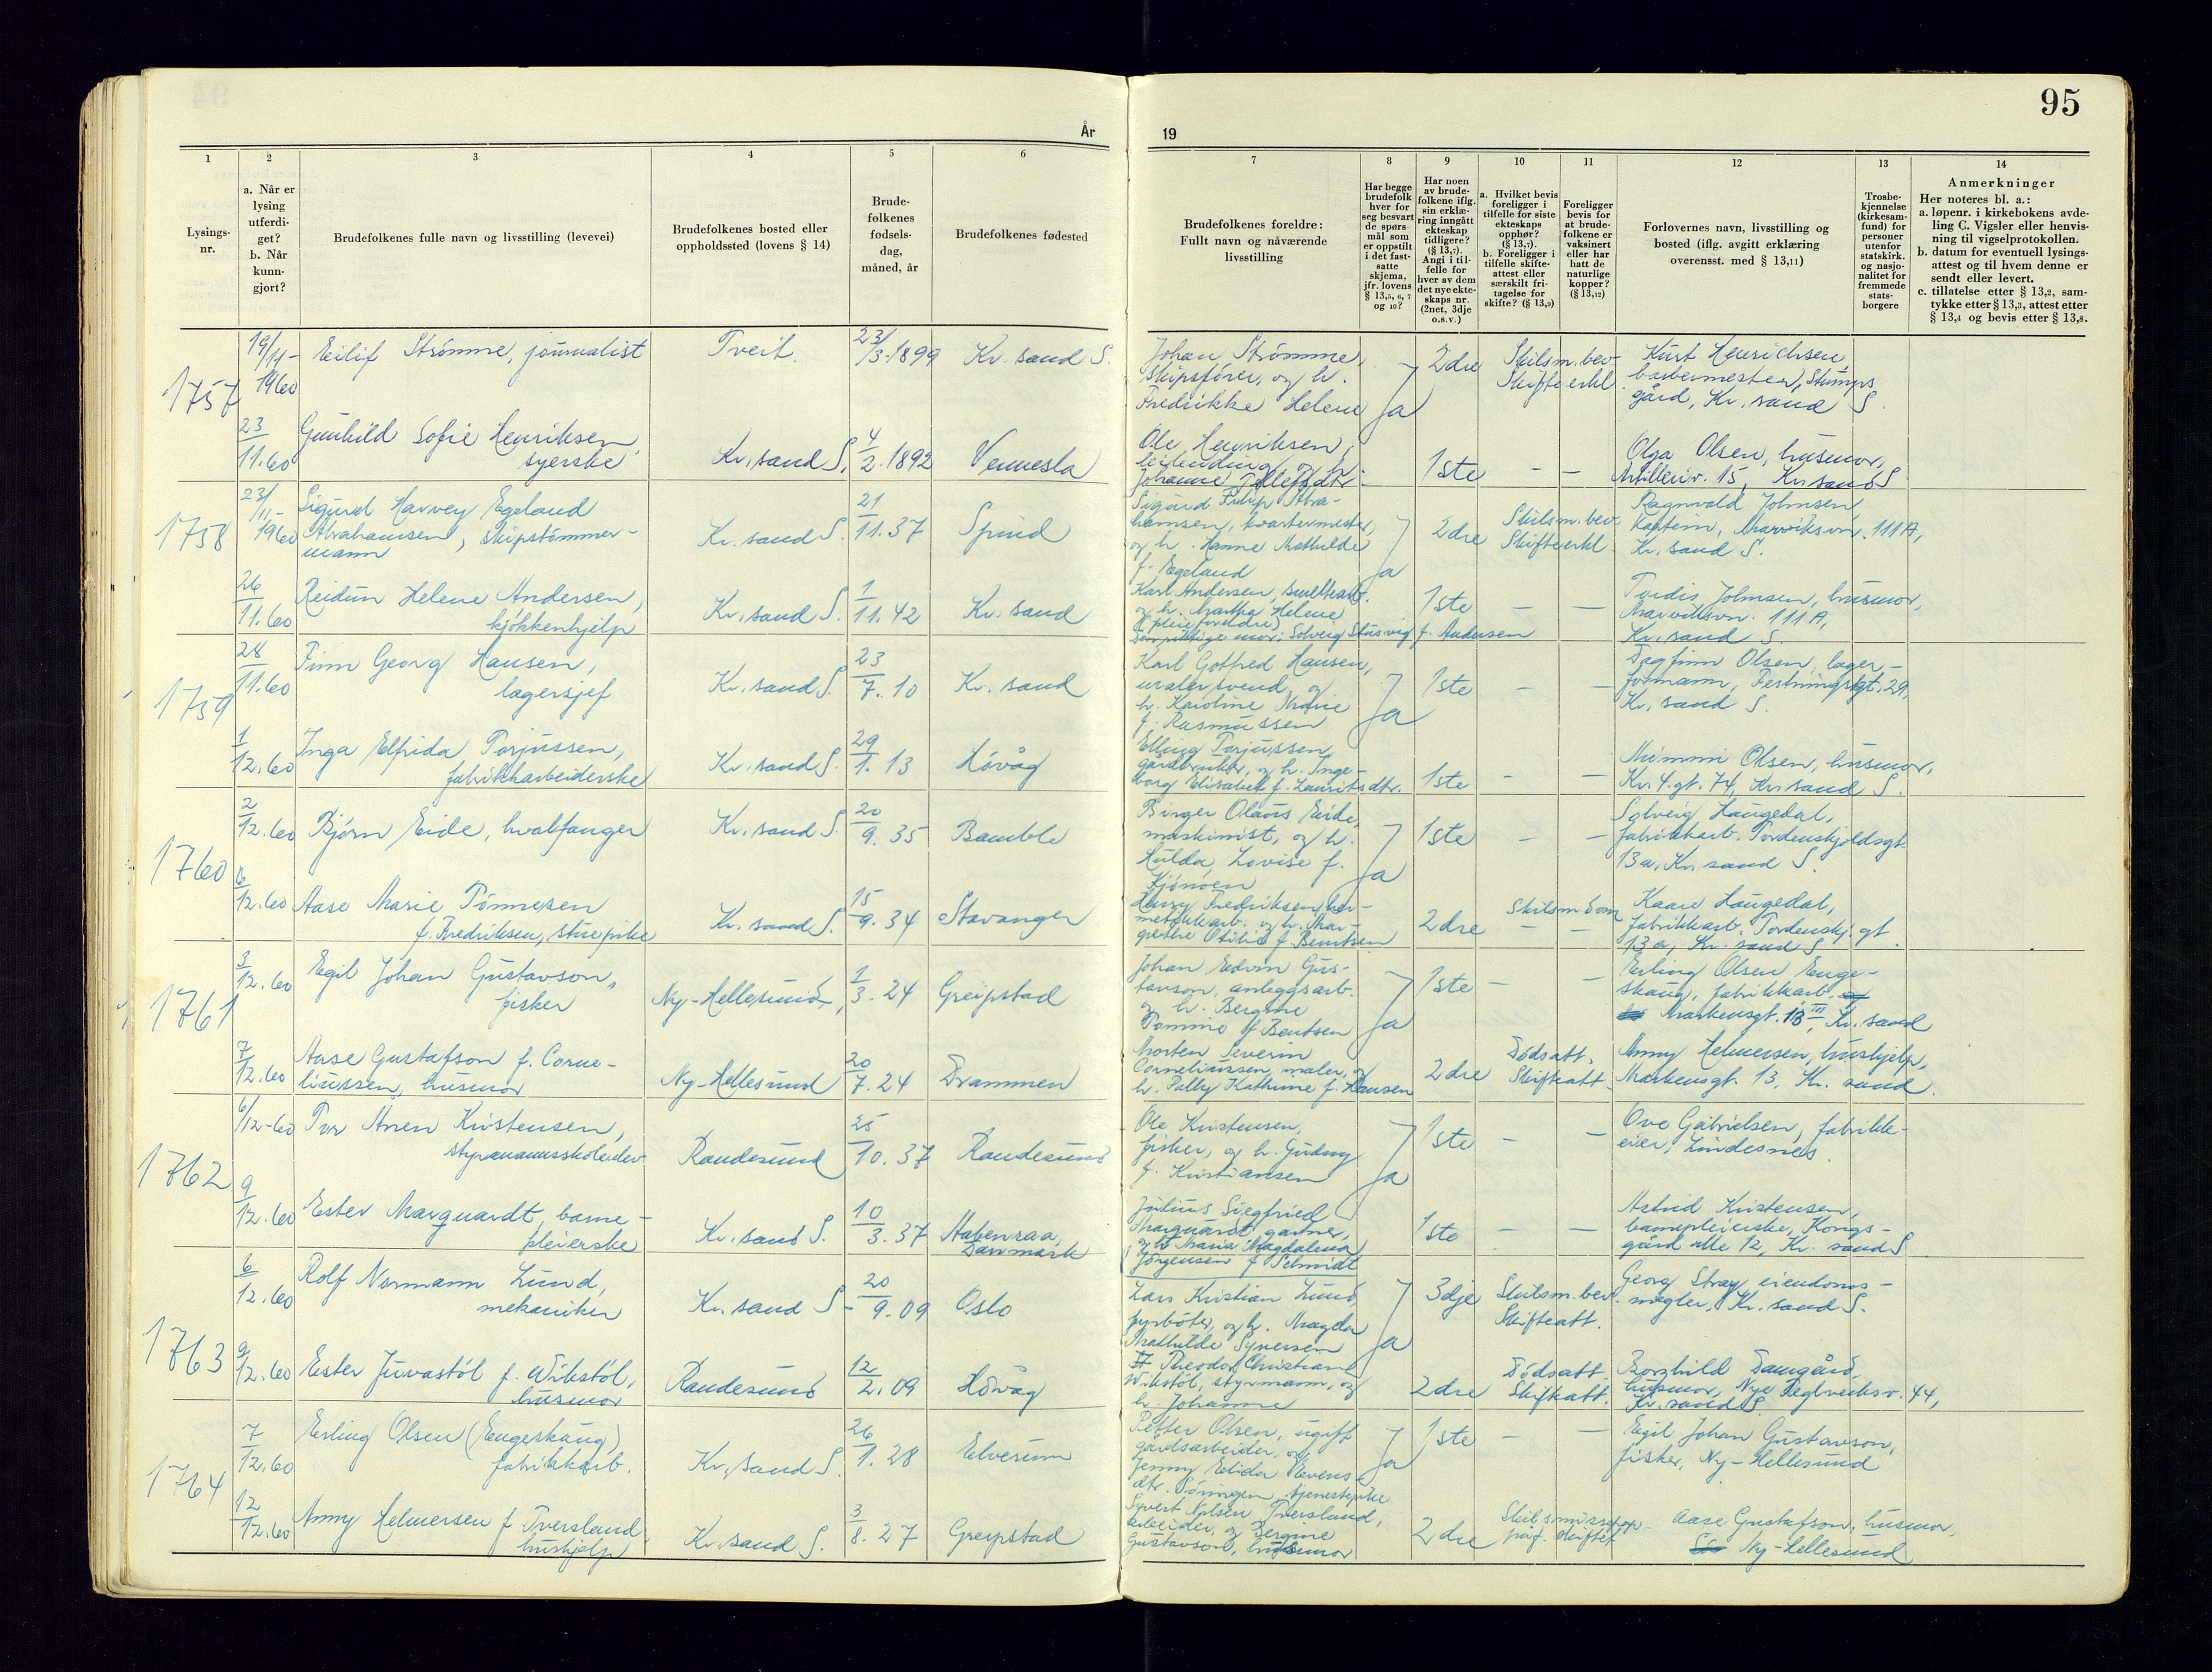 95
År
19
1
2
3
4
5
6
7
8
9
10
11
12
13
14
Lysings-
nr.
a. Når er
lysing
utferdi-
get?
b. Når
kunn-
gjort?
Brudefolkenes fulle navn og livsstilling (levevei)
Brudefolkenes bosted eller
oppholdssted (lovens § 14)
Brude-
folkenes
fødsels-
dag,
måned, år
Brudefolkenes fødested
Brudefolkenes foreldre:
Fullt navn og nåværende
livsstilling
Har begge
brudefolk
hver for
seg besvart
de spørs-
mål som
er oppstilt
i det fast-
satte
skjema,
jfr. lovens
§ 13,5, 6, 7
og 10?
Har noen
av brude-
folkene iflg.
sin erklæ-
ring inngått
ekteskap
tidligere?
(§ 13,7).
Angi i til-
felle for
hver av dem
det nye ekte-
skaps nr.
(2net, 3dje
o.s.v.)
a. Hvilket bevis
foreligger i
tilfelle for siste
ekteskaps
opphør?
(§ 13,7).
b. Foreligger i
tilfelle skifte-
attest eller
særskilt fri-
tagelse for
skifte? (§ 13,9)
Foreligger
bevis for
at brude-
folkene er
vaksinert
eller har
hatt de
naturlige
kopper?
(§ 13,12)
Forlovernes navn, livsstilling og
bosted (iflg. avgitt erklæring
overensst. med § 13,11)
Trosbe-
kjennelse
(kirkesam-
fund) for
personer
utenfor
statskirk.
og nasjo-
nalitet for
fremmede
stats-
borgere
Anmerkninger
Her noteres bl. a.:
a. løpenr. i kirkebokens avde-
ling C. Vigsler eller henvis-
ning til vigselprotokollen.
b. datum for eventuell lysings-
attest og til hvem denne er
sendt eller levert.
c. tillatelse etter § 13,2, sam-
tykke etter § 13,3, attest etter
§ 13,4 og bevis etter § 13,8.
1757
19/11-
1960
Eilif Strømme, journalist
Tveit.
23/3-1899
Kr. sand S.
Johan Strømme,
skipsfører, og h.
Fredrikke Helene
Ja
2dre
Skilsm. bev.
Skifteerkl.
Kurt Henrichsen
barbermester, Stumps
gård, Kr. sand S.
23
11.60
Gunhild Sofie Henriksen,
syerske
Kr. sand S.
4
2.1892
Vennesla
Ole Henriksen,
og h.
Johanne Tollefsdtr.
1ste
- -
Olga Olsen, husmor,
Artilleriv. 15, Kr. sand S
1758
23/11-
1960
Sigurd Harvey Egeland
Abrahamsen, skipstømmer-
mann
Kr. sand S.
21
11.37
Spind
Sigurd Filip Abra-
hamsen, kvartermester,
og h. Hanne Mathilde
f. Egeland
Ja
2dre
Skilsm. bev.
Skifteerkl.
Ragnvald Johnsen,
kaptein, Marviksvn. 111A,
Kr. sand S.
26
11.60
Reidun Helene Andersen,
kjøkkenhjelp
Kr. sand S.
1
11.42
Kr. sand
Karl Andersen, smelteverk.
og h. Martha Helene
(pleieforeldre)
Den riktige mor: Solveig Stusvig f. Andersen
1ste
- -
Tordis Johnsen, husmor,
Marviksvn. 111A,
Kr. sand S.
1759
28
11.60
Finn Georg Hansen,
lagersjef
Kr. sand S.
23
7.10
Kr. sand
Karl Gotfred Hansen,
malersvend, og
h. Karoline Marie
f. Rasmussen
Ja
1ste
- -
Dagfinn Olsen, lager-
formann, Festningsgt. 29,
Kr. sand S.
1
12.60
Inga Elfrida Torjussen,
fabrikkarbeiderske
Kr. sand S.
29
1.13
Høvåg
Elling Torjussen,
gardbruker, og h. Inge-
borg Elisabet f. Lauritsdtr.
1ste
- -
Mimmi Olsen, husmor,
Kr. 4. gt. 74, Kr. sand S.
1760
2
12.60
Bjørn Eide, hvalfanger
Kr. sand S.
20
9.35
Bamble
Birger Olaus Eide,
maskinist, og h.
Hulda Lovise f.
Ja
1ste
- -
Solveig Haugedal,
fabrikkarb. Tordenskjoldsgt.
13a, Kr. sand S.
6
12.60
Aase Marie Tønnesen
f. Fredriksen, stuepike
Kr. sand S.
15
9.34
Stavanger
Harry Fredriksen, her-
metikkarb. og h. Mar-
grethe Otilie f. Berntsen
2dre
Skilsm dom
- -
Kaare Haugedal,
fabrikkarb. Tordenskj. gt
13a, Kr. sand S
1761
3
12.60
Egil Johan Gustavson,
fisker
Ny-Hellesund,
1
3.24
Greipstad
Johan Edvin Gus-
tavson, anleggsarb.
og h. Bergine
Tomine f Bentsen
Ja
1ste
- -
Erling Olsen Enge-
skaug, fabrikkarb.
Markensgt. 13 III, Kr. sand
7
12.60
Aase Gustafson f. Corne-
liussen, husmor
Ny-Hellesund
20
7.24
Drammen
Morten Severin
Corneliussen, maler, og
h. Palby Kathrine f. Hansen
2dre
Dødsatt.
Skifteatt.
Anny Helmersen, hushjelp,
Markensgt. 13, Kr. sand.
1762
6/12-60
Tor Anen Kristensen,
styrmannsskoleelev
Randesund
25
10.37
Randesund
Ole Kristensen,
fisker, og h. Gudny
f. Kristiansen
Ja
1ste
- -
Ove Gabrielsen, fabrikk-
eier, Lindesnes.
9
12.60
Ester Marquardt, barne-
pleierske
Kr. sand S.
10
3.37
Aabenraa,
Danmark
Julius Siegfried
Marquardt, gartner,
og h. Maria Magdalena
Jørgensen f Schmidt
1ste
- -
Astrid Kristensen,
barnepleierske, Kongs-
gård alle 12, Kr. sand S
1763
6
12.60
Rolf Normann Lund,
mekaniker
Kr. sand S-
20
9.09
Oslo
Lars Kristian Lund,
fyrbøter, og h. Magda
Mathilde Syversen
Ja
3dje
Skilsm. bev.
Skifteatt.
Georg Stray eiendoms-
megler, Kr. sand S.
9
12.60
Ester Juvastøl f. Wibstøl,
husmor
Randesund
12
2.09
Høvåg
Theodor Christian
Wibstøl, styrmann, og
h. Johanne
2dre
Dødsatt.
Skifteatt.
Borghild Damgård,
husmor, Nye Teglverksv. 44,
Kr. sand S
1764
7
12.60
Erling Olsen (Engeskaug)
fabrikkarb.
Kr. sand S.
26
1.28
Elverum
Petter Olsen, ugift
gårdsarbeider, og
Jenny Elida Evens-
dtr. tjenestepike
Ja
1ste
- -
Egil Johan Gustavson,
fisker, Ny-Hellesund
12
12.60
Anny Helmersen f Tversland
hushjelp
Kr. sand S.
3
8.27
Greipstad
Syvert Nilsen Tversland,
arbeider, og Bergine
Gustavson, husmor
2dre
Aase Gustafson, husmor,
Ny-Hellesund